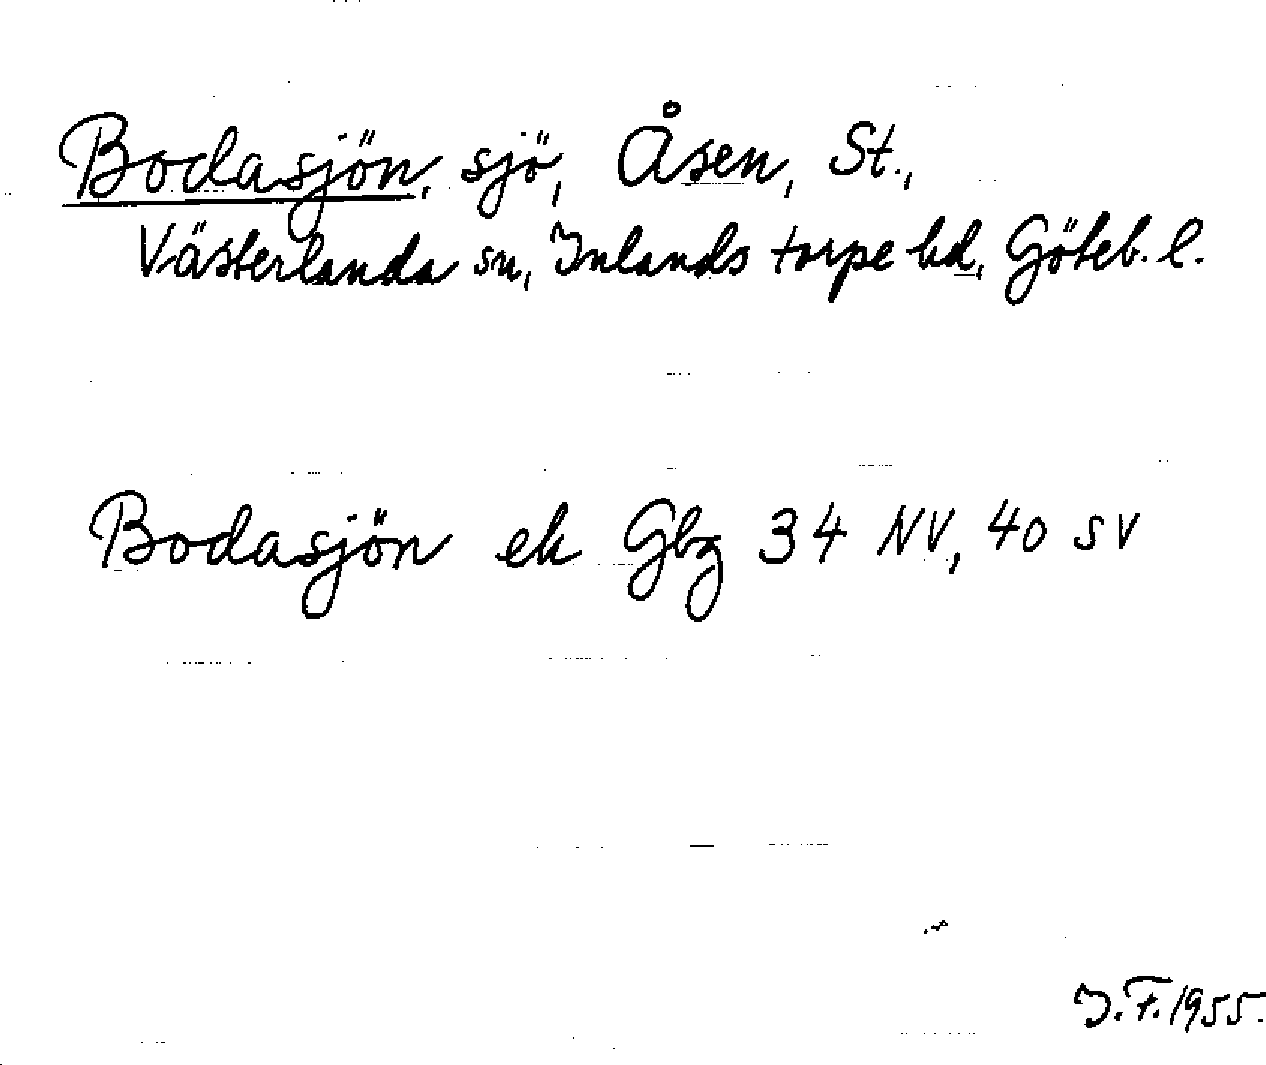 Bodasjön, sjö, Åsen, St.,
Västerlanda sn, Inlands torpe hd, Göteb. l.
Bodasjön ek Gbg 34 NV, 40 SV
I.F. 1955.